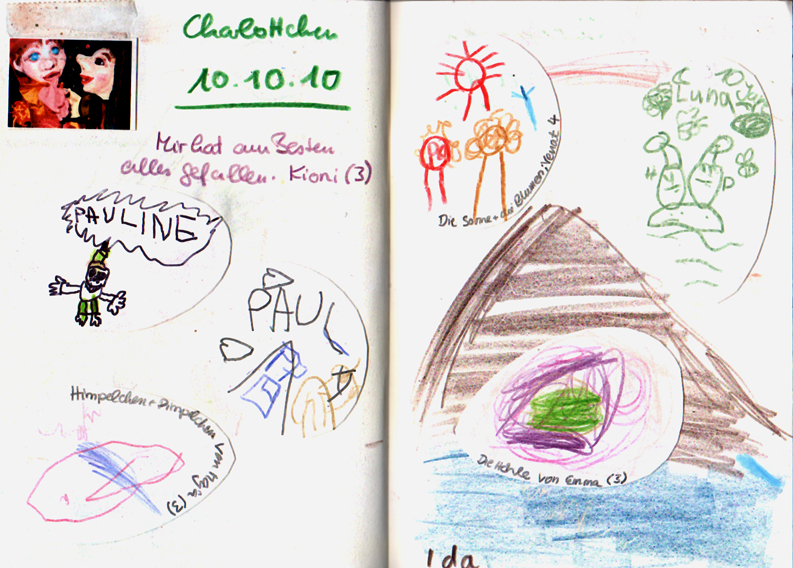 Charlottchen
10.10.10
Mir hat am Besten
alles gefallen. Kioni (3)
PAULINE
PAUL
Himpelchen + Pimpelchen von (3)
Die Sonne + die Blumen, 4
10
Luna
H D
Die Höhle von Emma (3)
Ida